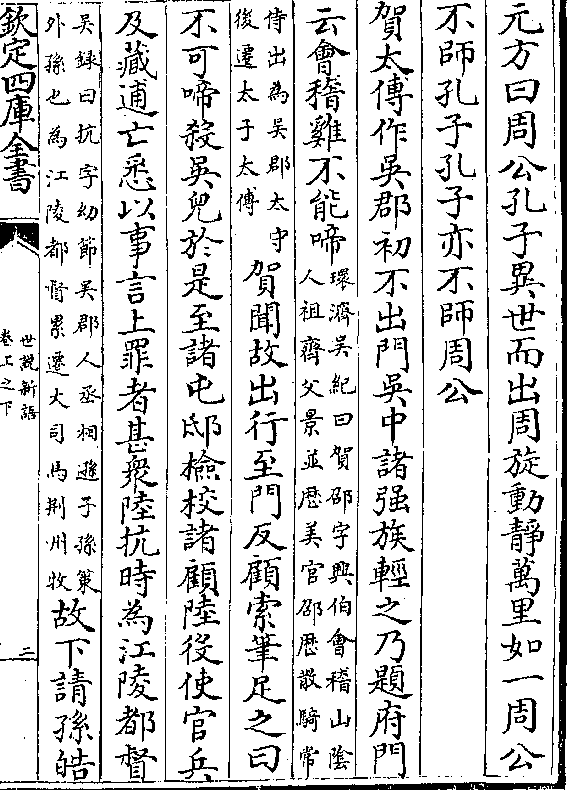 元方曰周公孔子異世而出周旋動靜萬里如一周公
不師孔子孔子亦不師周公
賀太傅作吳郡初不出門吳中諸强族輕之乃題府門
云會稽雞不能啼
環濟吳紀曰賀邵字興伯會稽山陰
人祖齊父景並歴美官邵歴散騎常
侍出為吳郡太守
後遷太子太傅
賀聞故出行至門反顧索筆足之曰
不可啼殺吳兒於是至諸屯邸檢校諸顧陸役使官兵
及藏逋亡悉以事言上罪者甚衆陸抗時為江陵都督
吳録曰抗字幼節吳郡人丞相遜子孫策
外孫也為江陵都督累遷大司馬荆州牧
故下請孫皓
欽定四庫全書
世説新語
卷上之下
二